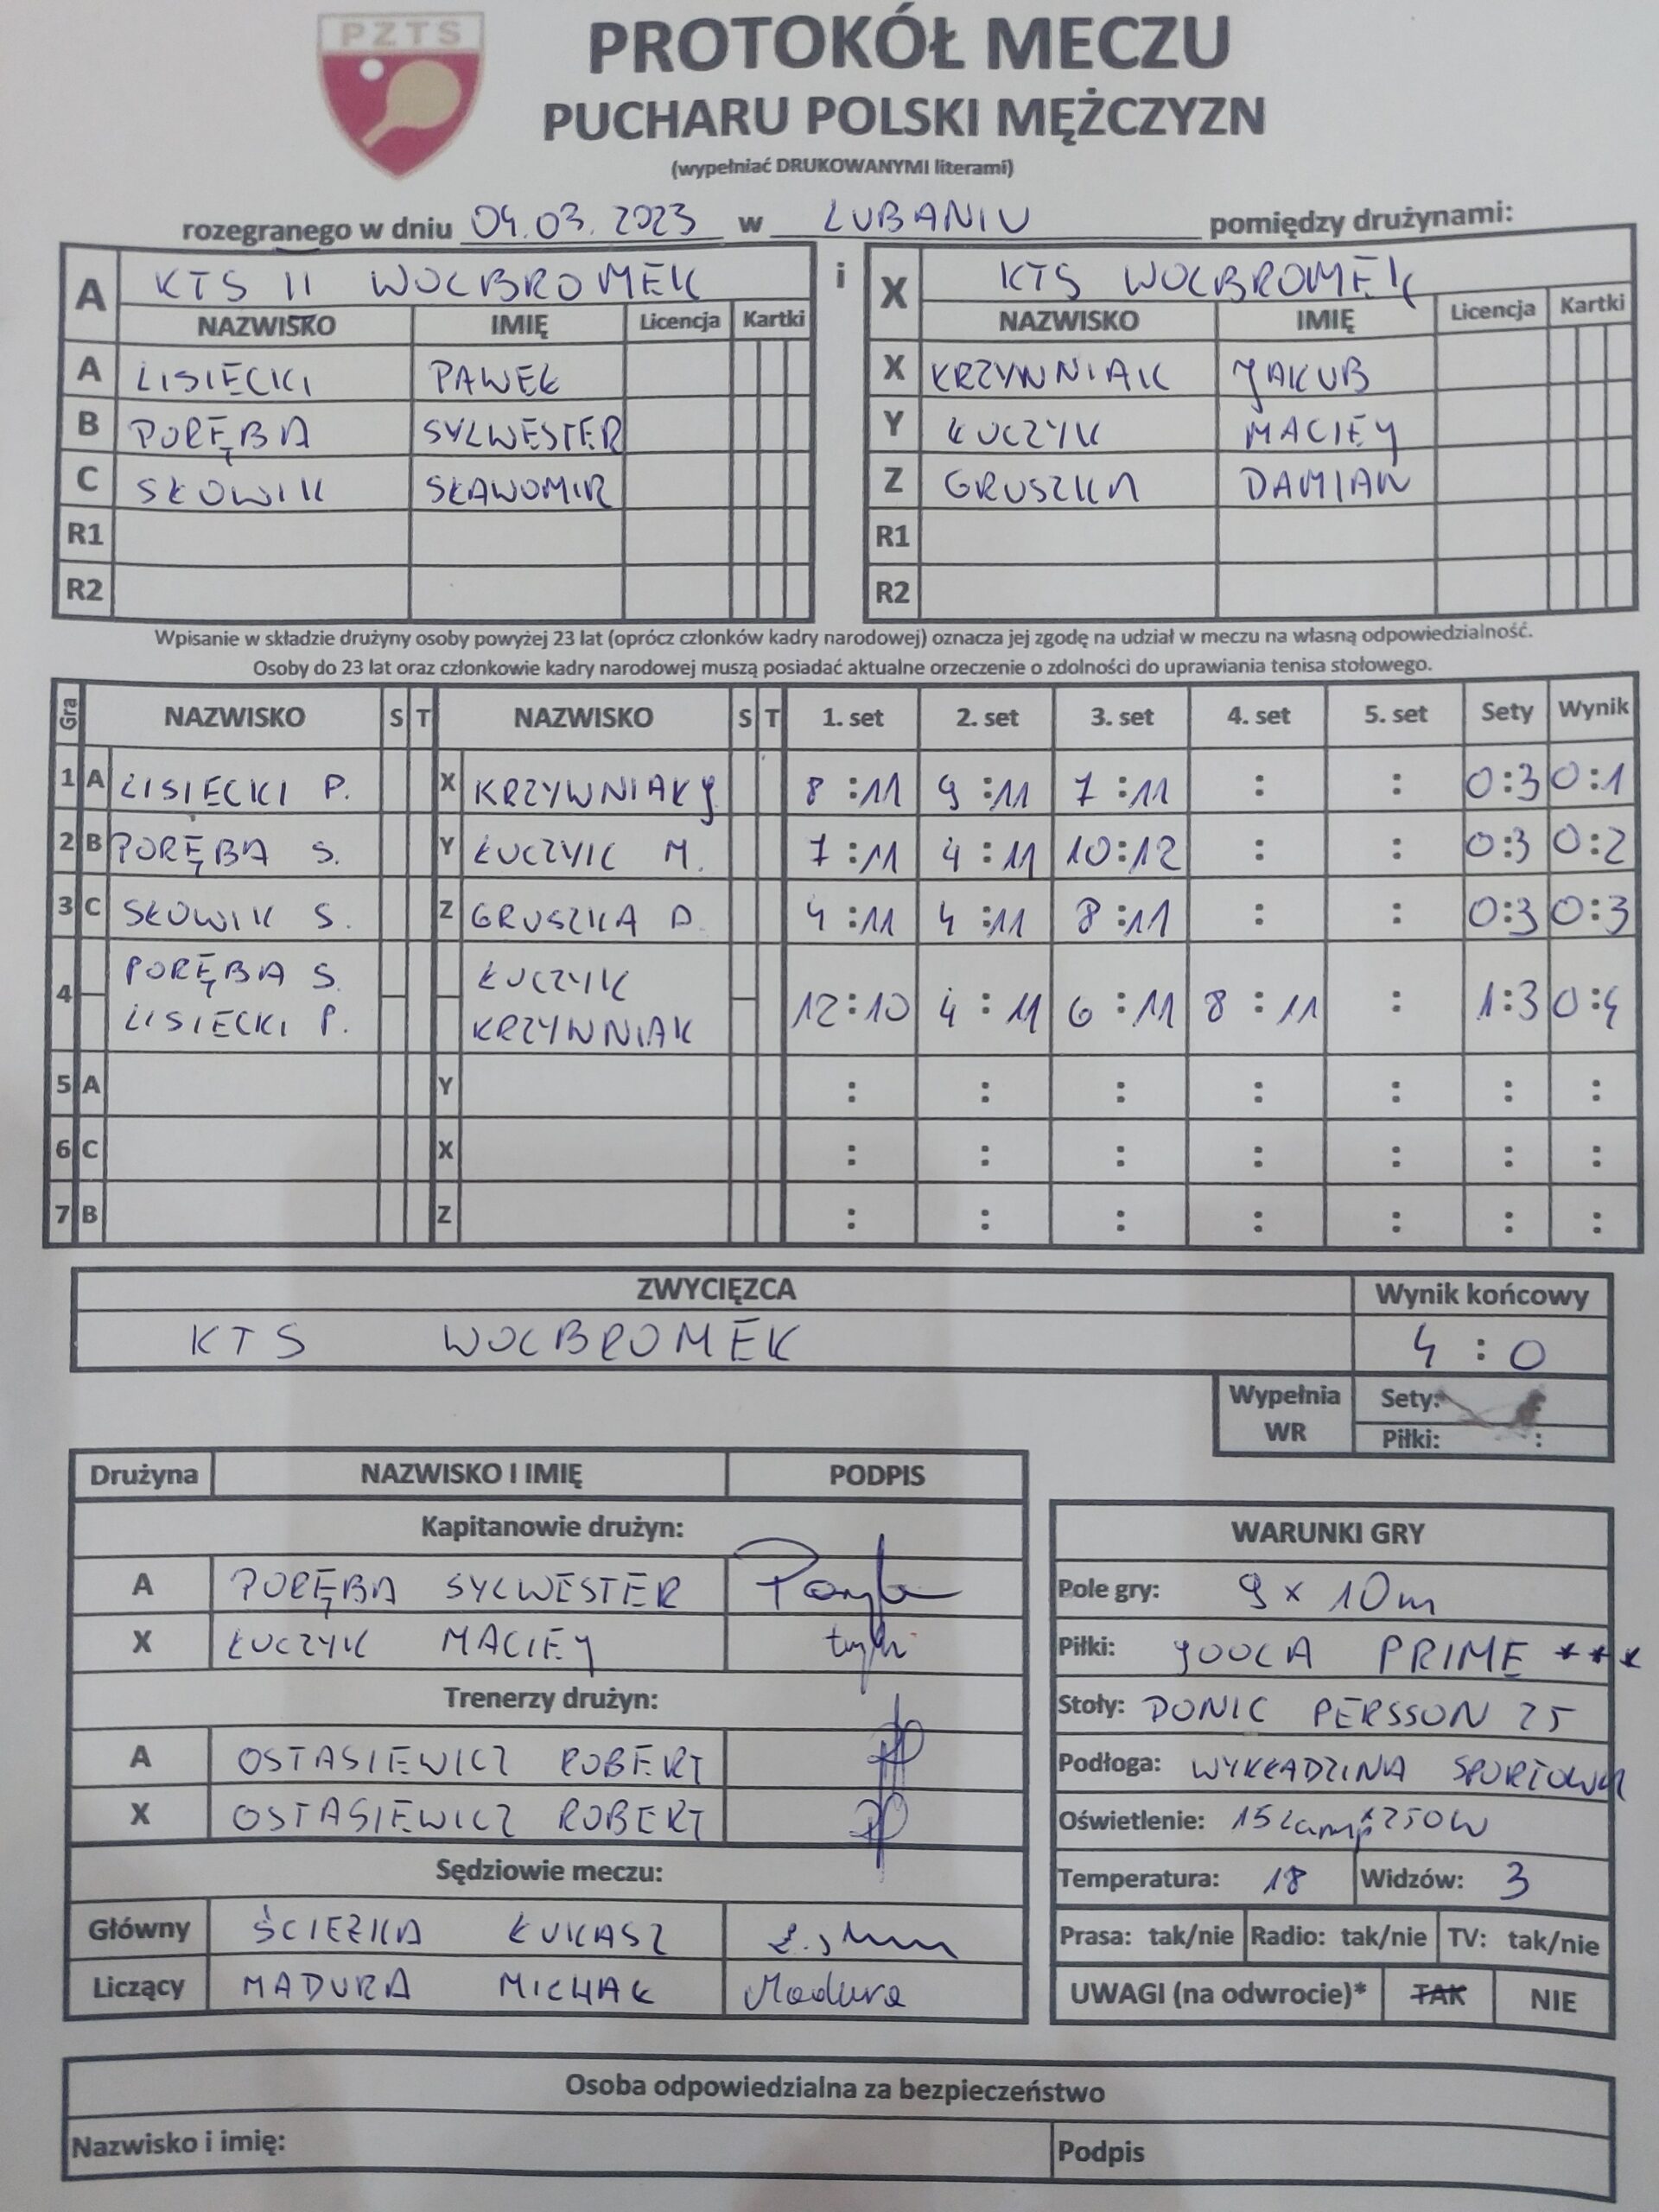 PZTS
PROTOKÓŁ MECZU
PUCHARU POLSKI MĘŻCZYZN
(wypełniać DRUKOWANYMI literami)
rozegranego w dniu 04.03.2023 w LUBANIU pomiędzy drużynami:
A KTS II WOLBROMEK i X KTS WOLBROMEK
NAZWISKO IMIĘ Licencja Kartki NAZWISKO IMIĘ Licencja Kartki
A LISIECKI PAWEŁ X KRZYWNIAK JAKUB
B PORĘBA SYLWESTER Y ŁUCZYK MACIEJ
C SŁOWIK SŁAWOMIR Z GRUSZKA DAMIAN
R1 R1
R2 R2
Wpisanie w składzie drużyny osoby powyżej 23 lat (oprócz członków kadry narodowej) oznacza jej zgodę na udział w meczu na własną odpowiedzialność.
Osoby do 23 lat oraz członkowie kadry narodowej muszą posiadać aktualne orzeczenie o zdolności do uprawiania tenisa stołowego.
Gra NAZWISKO S T NAZWISKO S T 1. set 2. set 3. set 4. set 5. set Sety Wynik
1 A LISIECKI P. X KRZYWNIAK J 8:11 9:11 7:11 : : 0:3 0:1
2 B PORĘBA S. Y ŁUCZYK M. 7:11 4:11 10:12 : : 0:3 0:2
3 C SŁOWIK S. Z GRUSZKA D. 4:11 4:11 8:11 : : 0:3 0:3
4 PORĘBA S. ŁUCZYK 12:10 4:11 6:11 8:11 : 1:3 0:4
LISIECKI P. KRZYWNIAK
5 A Y : : : : : : :
6 C X : : : : : : :
7 B Z : : : : : : :
ZWYCIĘZCA Wynik końcowy
KTS WOLBROMEK 4:0
Wypełnia WR Sety:
Piłki: :
Drużyna NAZWISKO I IMIĘ PODPIS
Kapitanowie drużyn:
A PORĘBA SYLWESTER
X ŁUCZYK MACIEJ
Trenerzy drużyn:
A OSTASIEWICZ ROBERT
X OSTASIEWICZ ROBERT
Sędziowie meczu:
Główny ŚCIEŻKA ŁUKASZ
Liczący MADURA MICHAŁ Madura
WARUNKI GRY
Pole gry: 9 x 10m
Piłki: JOOLA PRIME ***
Stoły: DONIC PERSSON 25
Podłoga: WYKŁADZINA SPORTOWA
Oświetlenie: 15 lamp 250W
Temperatura: 18 Widzów: 3
Prasa: tak/nie Radio: tak/nie TV: tak/nie
UWAGI (na odwrocie)* TAK NIE
Osoba odpowiedzialna za bezpieczeństwo
Nazwisko i imię: Podpis